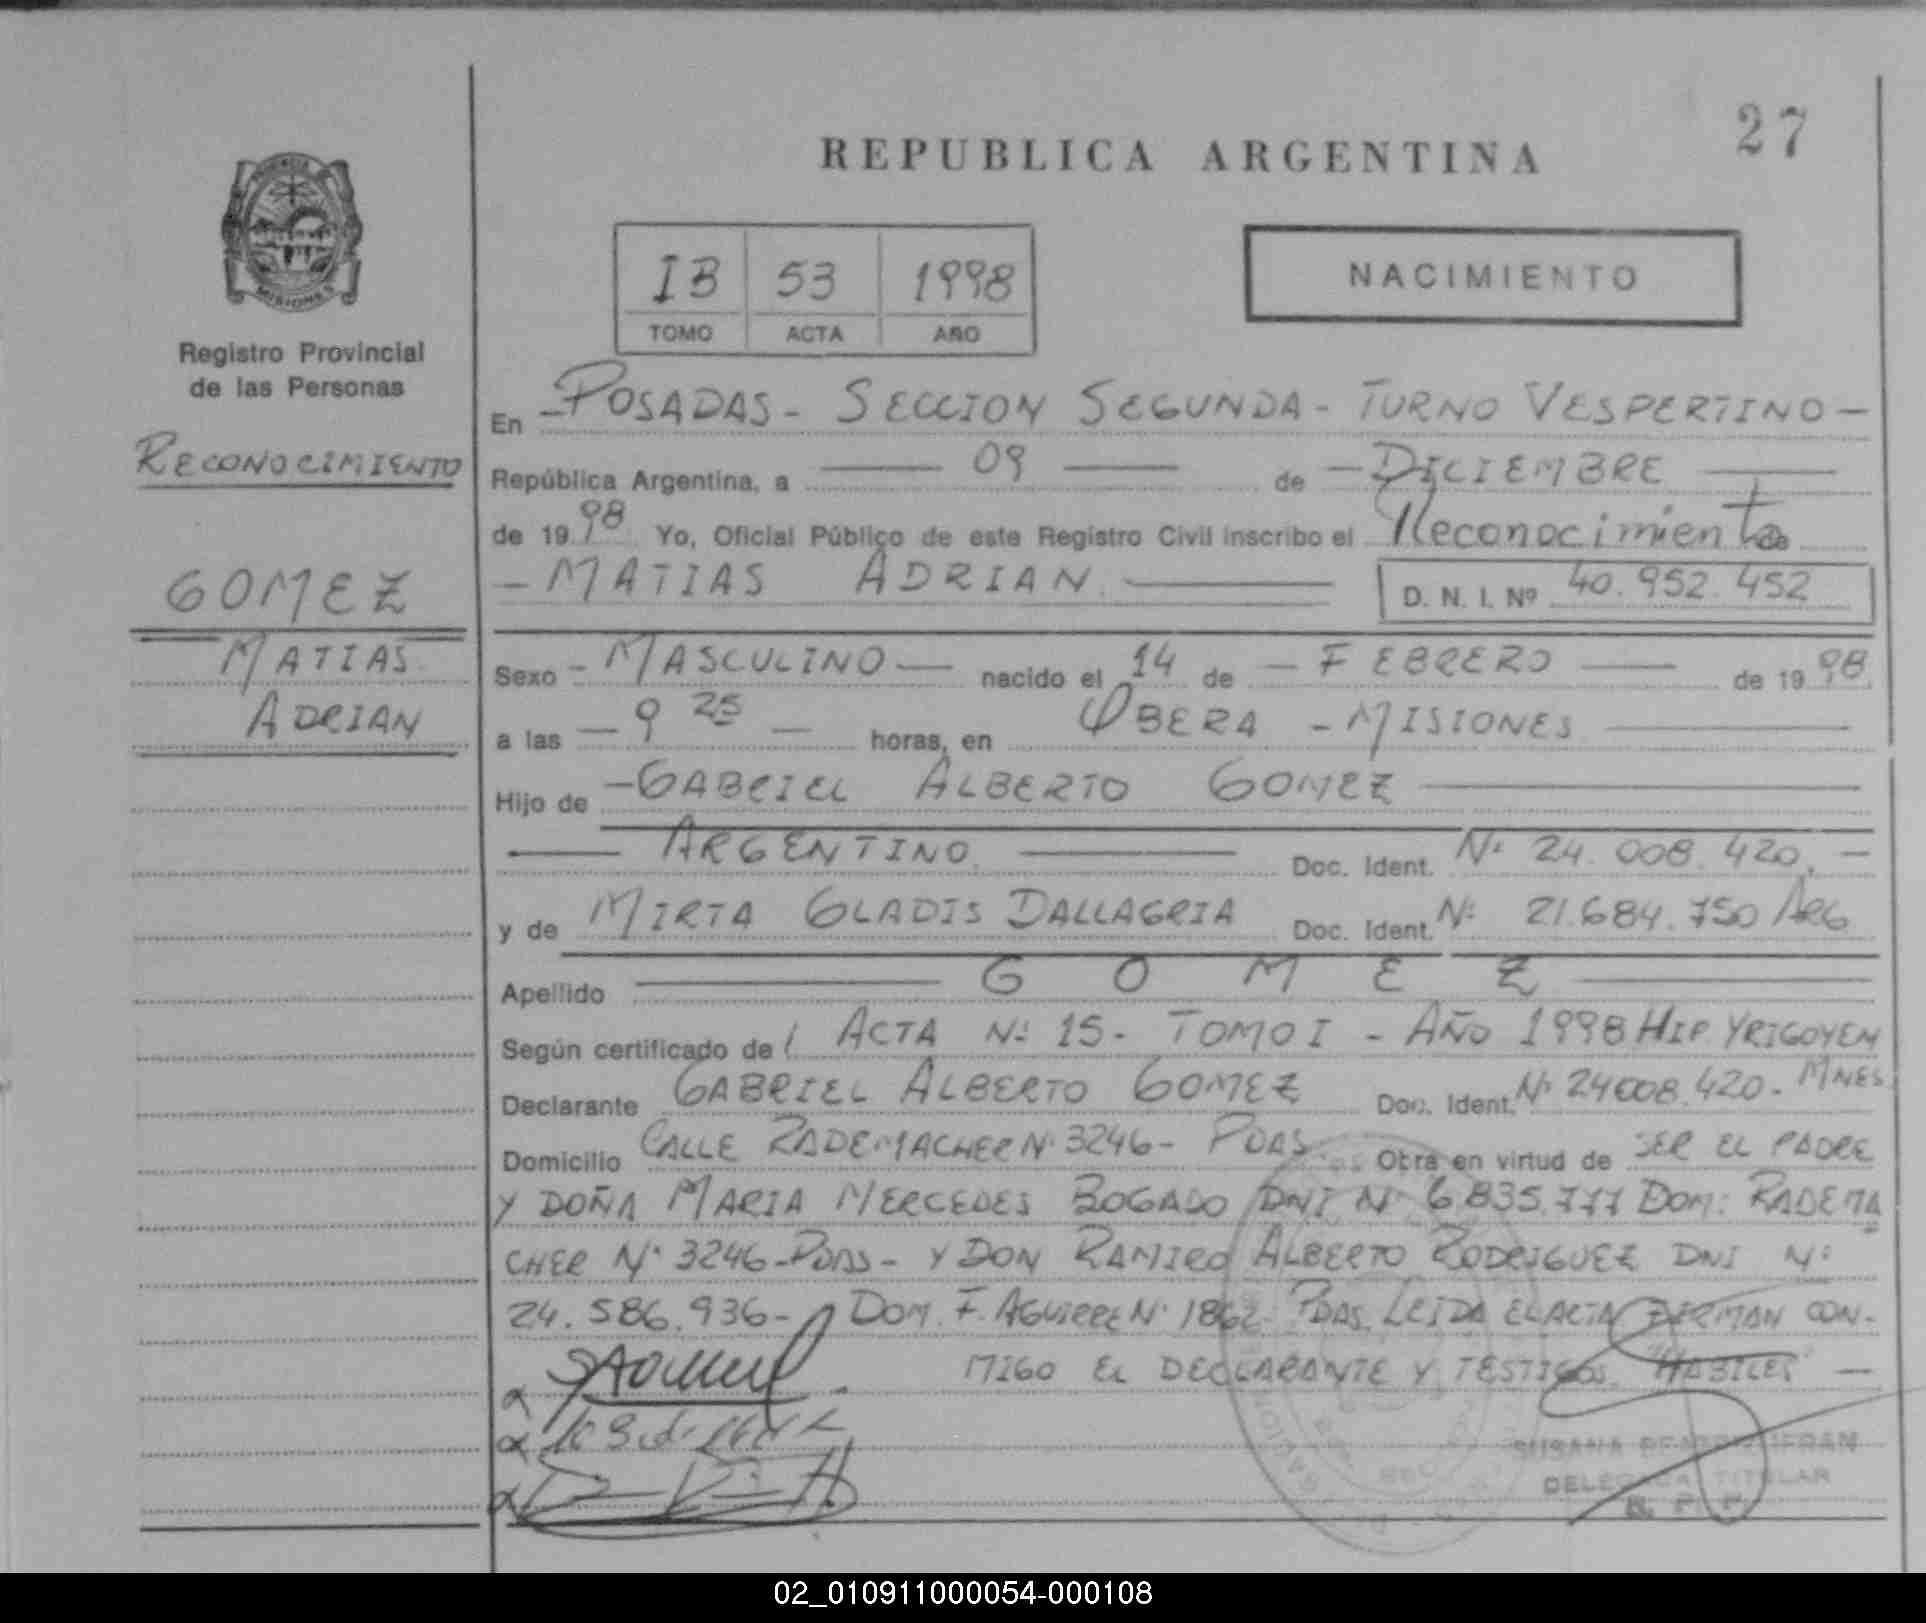 27
REPUBLICA ARGENTINA
MISIONES
Registro Provincial
de las Personas
RECONOCIMIENTO
GOMEZ
MATIAS
ADRIAN
IB 53 1998
TOMO ACTA AÑO
NACIMIENTO
En - POSADAS - SECCION SEGUNDA - TURNO VESPERTINO -
República Argentina, a 09 de - DICIEMBRE
de 1998 Yo, Oficial Público de este Registro Civil inscribo el Reconocimiento de
- MATIAS ADRIAN D. N. I. Nº 40.952.452
Sexo - MASCULINO - nacido el 14 de - FEBRERO - de 1998
a las - 9 25 - horas, en OBERA - MISIONES
Hijo de - GABRIEL ALBERTO GOMEZ
ARGENTINO Doc. Ident. Nº 24.008.420. -
y de MIRTA GLADIS DALLAGRIA Doc. Ident. Nº 21.684.750 ARG
Apellido GOMEZ
Según certificado de ACTA Nº 15 - TOMO I - AÑO 1998 HIP YRIGOYEN
MNES
Declarante GABRIEL ALBERTO GOMEZ Doc. Ident. Nº 24008.420 -
Domicilio CALLE RADEMACHER Nº 3246 - PDAS Obra en virtud de SER EL PADRE
Y DOÑA MARIA MERCEDES BOGADO DNI Nº 6.835.777 DOM: RADEMA
CHER Nº 3246 - PDAS - Y DON RAMIRO ALBERTO RODRIGUEZ DNI Nº
24.586.936 - DOM. F. AGUIRRE Nº 1862 - PDAS. LEIDA EL ACTA FIRMAN CON-
MIGO EL DECLARANTE Y TESTIGOS "HABILES" -
SUSANA
DELEGADA TITULAR
R. P. P.
02_010911000054-000108